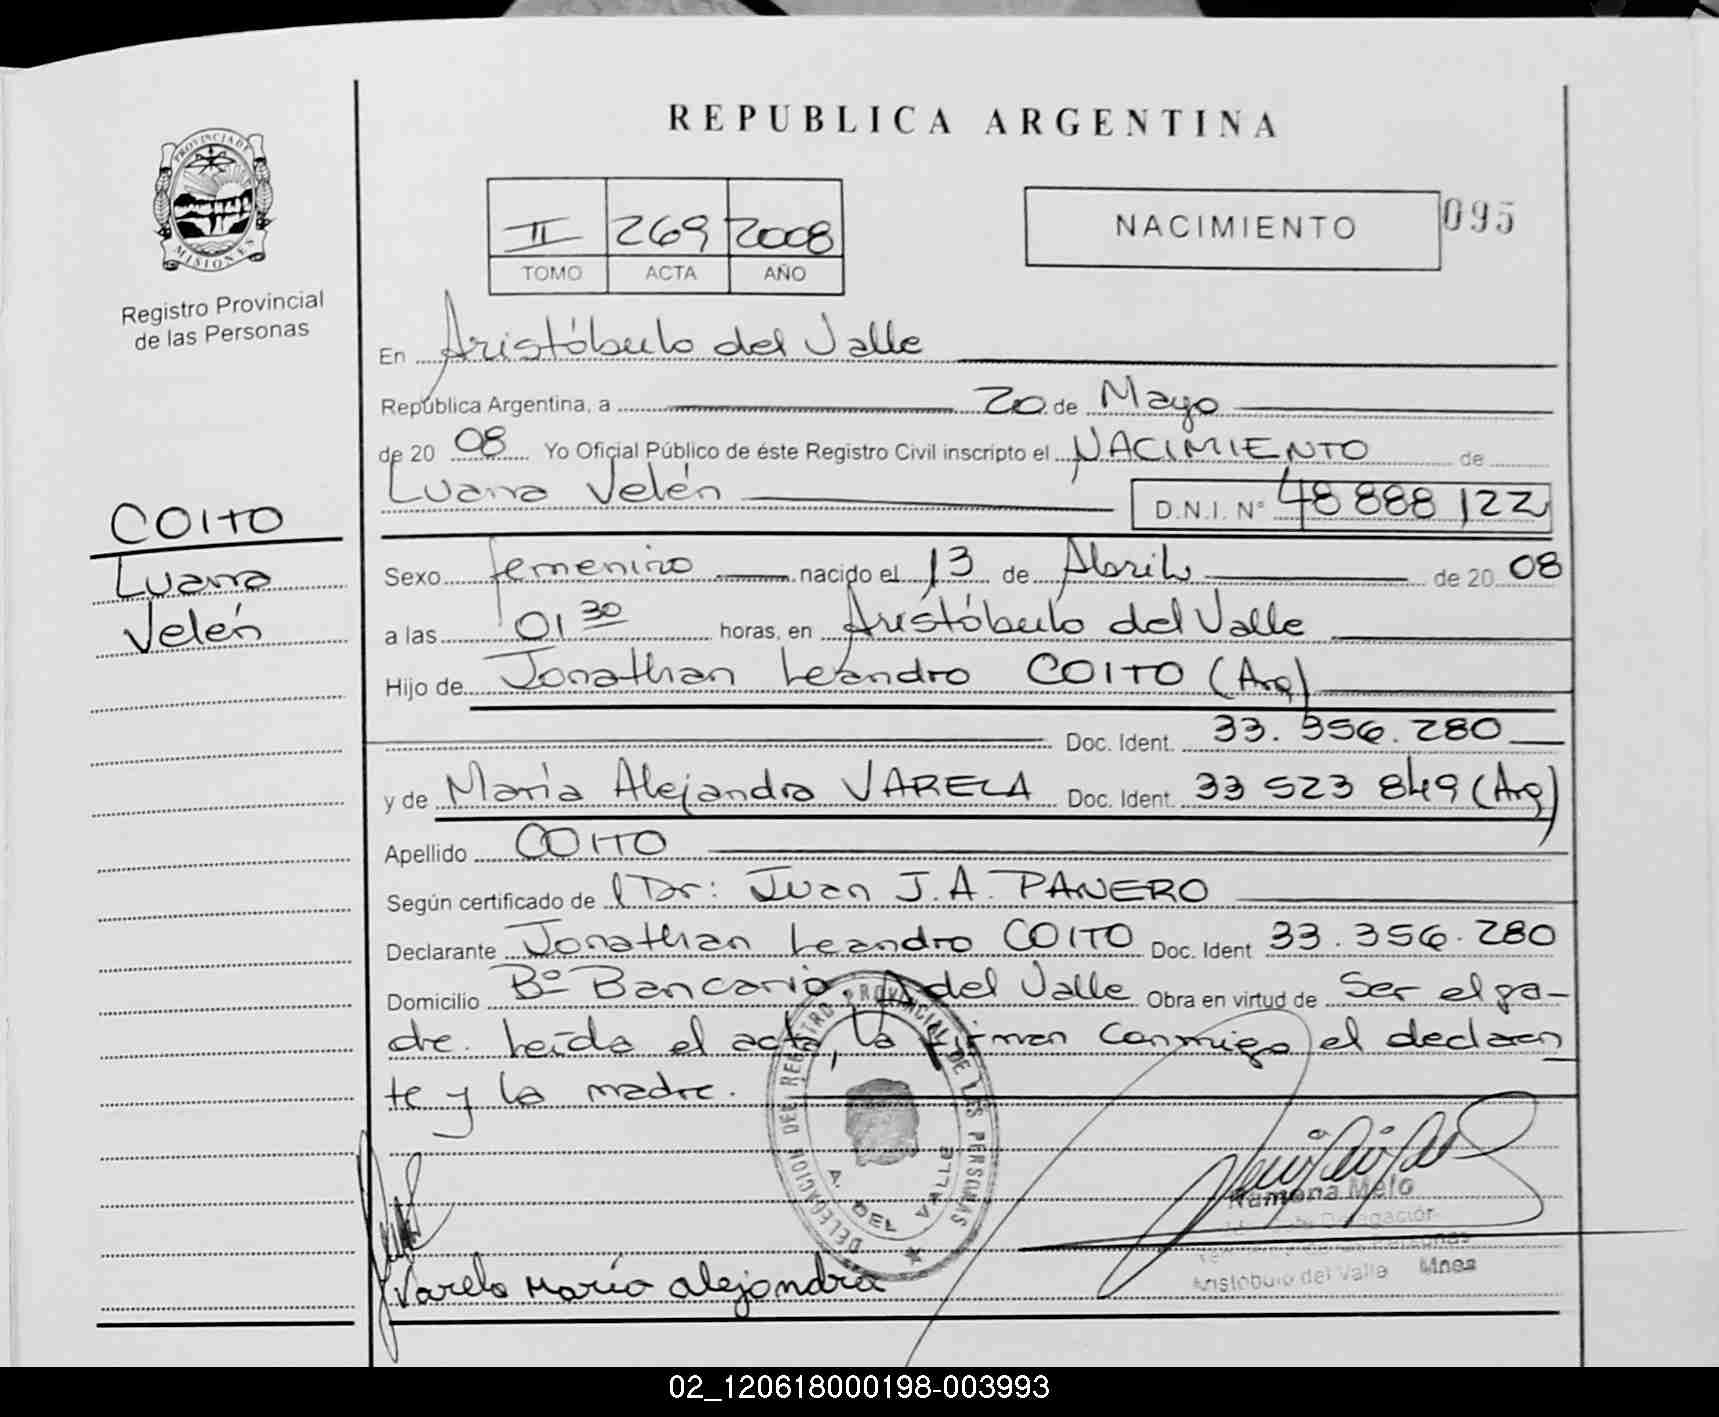 REPUBLICA ARGENTINA
PROVINCIA DE
MISIONES
Registro Provincial
de las Personas
II 269 2008
TOMO ACTA AÑO
NACIMIENTO 095
En Aristóbulo del Valle
República Argentina, a 20 de Mayo
de 20 08 Yo Oficial Público de éste Registro Civil inscripto el NACIMIENTO de
Luana Velén
D.N.I. N° 48 888 122
COITO
Luana
Velén
Sexo femenino nacido el 13 de Abril de 20 08
a las 01 30 horas, en Aristóbulo del Valle
Hijo de Jonathan Leandro COITO (Arg)
Doc. Ident. 33.356.280
y de María Alejandra VARELA Doc. Ident. 33 523 849 (Arg)
Apellido COITO
Según certificado de l Dr: Juan J.A. PANERO
Declarante Jonathan Leandro COITO Doc. Ident 33.356.280
Domicilio Bº Bancario A del Valle Obra en virtud de Ser el pa-
dre. Leída el acta, la firman conmigo el declaran
te y la madre.
DELEGACION DEL REGISTRO PROVINCIAL DE LAS PERSONAS
A. DEL VALLE
Ramona Melo
Delegación
Personas
Aristóbulo del Valle Mnes
Varela María alejandra
02_120618000198-003993